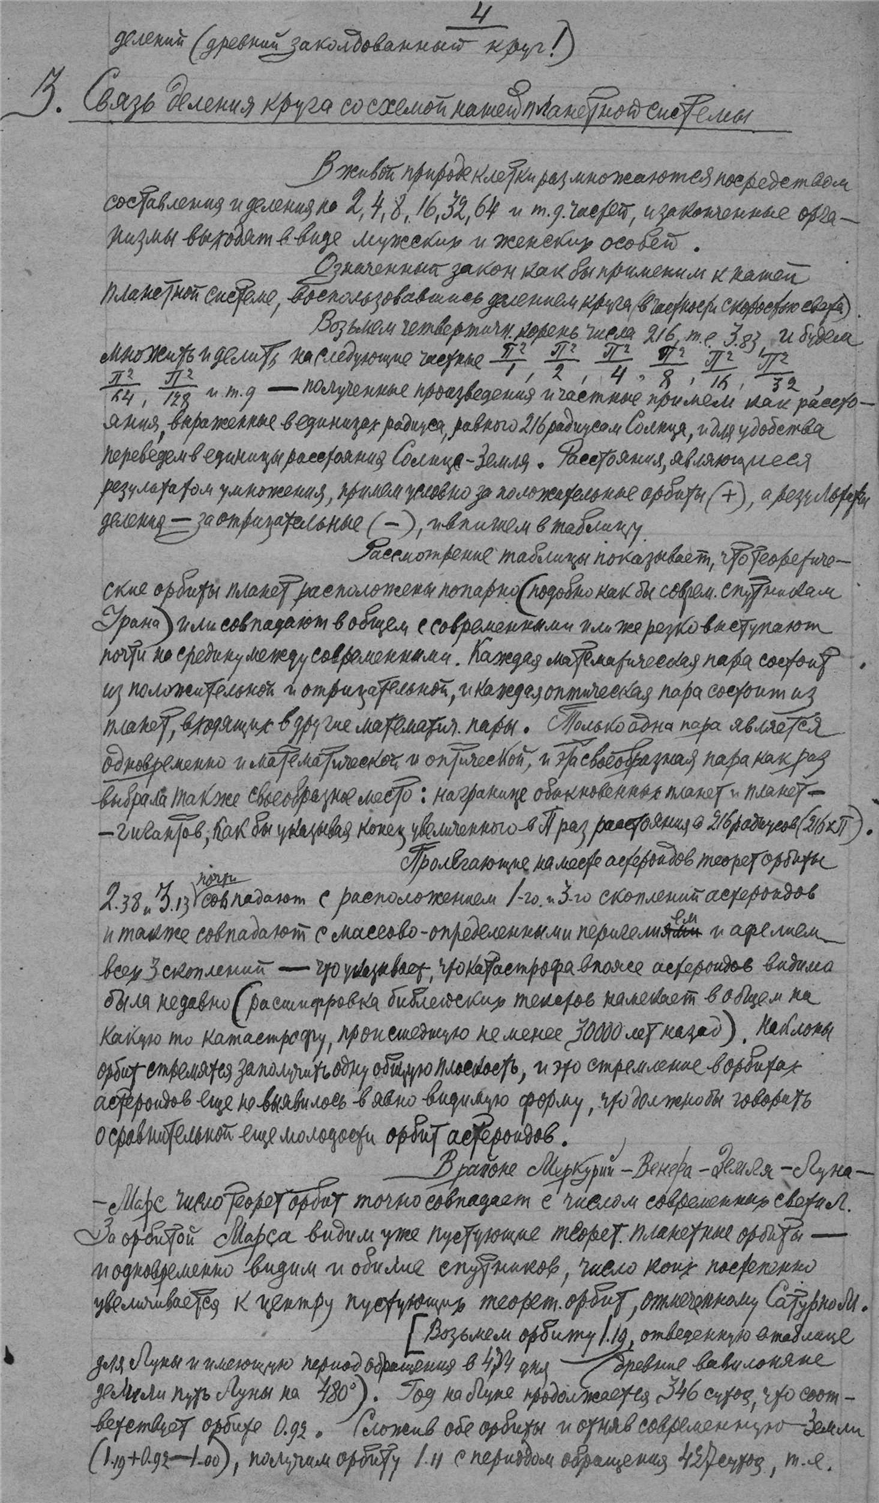 4
делений (древний заколдованный круг!)
3. Связь деления круга со схемой нашей планетной системы
В живой природе клетки размножаются посредством
составления и деления на 2, 4, 8, 16, 32, 64 и т.д. частей, и законченные орга–
низмы выходят в виде мужских и женских особей.
Означенный закон как бы применим к нашей
планетной системе, воспользовавшись делением круга (в частности скоростью света).
Возьмем четвертичн. корень числа 216, т.е. 3.83, и будем
множить и делить на следующие частные П²/1, П²/2, П²/4, П²/8, П²/16, П²/32,
П²/64, П²/128 и т.д — полученные произведения и частные примем как рассто–
яния, выраженные в единицах радиуса, равного 216 радиусам Солнца, и для удобства
переведем в единицы расстояния Солнце-Земля. Расстояния, являющиеся
результатом умножения, примем условно за положительные орбиты (+), а результаты
деления — за отрицательные (–), и впишем в таблицу.
Рассмотрение таблицы показывает, что теоретиче–
ские орбиты планет расположены попарно (подобно как бы соврем. спутникам
Урана) или совпадают в общем с современными или же резко выступают
почти на средину между современными. Каждая математическая пара состоит
из положительной и отрицательной, и каждая оптическая пара состоит из
планет, входящих в другие математич. пары. Только одна пара является
одновременно и математической и оптической, и эта своеобразная пара как раз
выбрала также своеобразное место: на границе обыкновенных планет и планет–
–гигантов, как бы указывая конец увеличенного в П раз расстояния в 216 радиусов (216 x П).
Пролегающие на месте астероидов теорет орбиты
2.38 и 3.13 почти совпадают с расположением 1-го и 3-го скоплений астероидов
и также совпадают с массово-определенными перигелием и афелием
всех 3 скоплений — что указывает, что катастрофа в поясе астероидов видимо
была недавно (расшифровка библейских текстов намекает в общем на
какую то катастрофу, происшедшую не менее 30000 лет назад). Наклоны
орбит стремятся заполучить одну общую плоскость, и это стремление в орбитах
астероидов еще не выявилось в явно видимую форму, что должно бы говорить
о сравнительной еще молодости орбит астероидов.
В районе Меркурий – Венера – Земля – Луна –
– Марс число теорет орбит точно совпадает с числом современных светил.
За орбитой Марса видим уже пустующие теорет. планетные орбиты —
и одновременно видим и обилие спутников, число коих постепенно
увеличивается к центру пустующих теорет. орбит, отмеченному Сатурном.
[Возьмем орбиту 1.19, отведенную в таблице
для Луны и имеющую период обращения в 474 дня (древние вавилоняне
делили путь Луны на 480°). Год на Луне продолжается 346 суток, что соот–
ветствует орбите 0.92. Сложив обе орбиты и отняв современную Земли
(1.19 + 0.92 – 1.00), получим орбиту 1.11 с периодом обращения 427 суток, т.е.